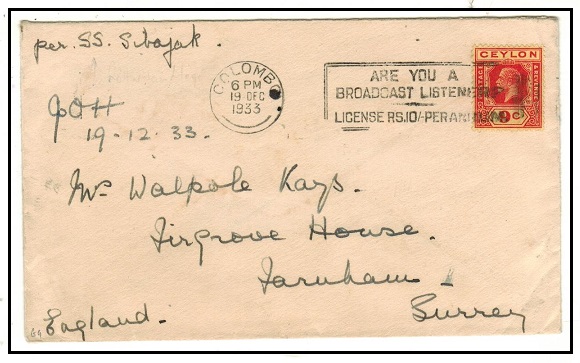 per. SS. Sibajak.
COLOMBO
6 PM
19 DEC
1933
ARE YOU A
BROADCAST LISTENER?
LICENSE RS.10/- PER ANNUM
CEYLON
POSTAGE
& REVENUE
9c
19.12.33.
Mrs Walpole Kays.
Firgrove House.
Farnham -
Surrey
England.